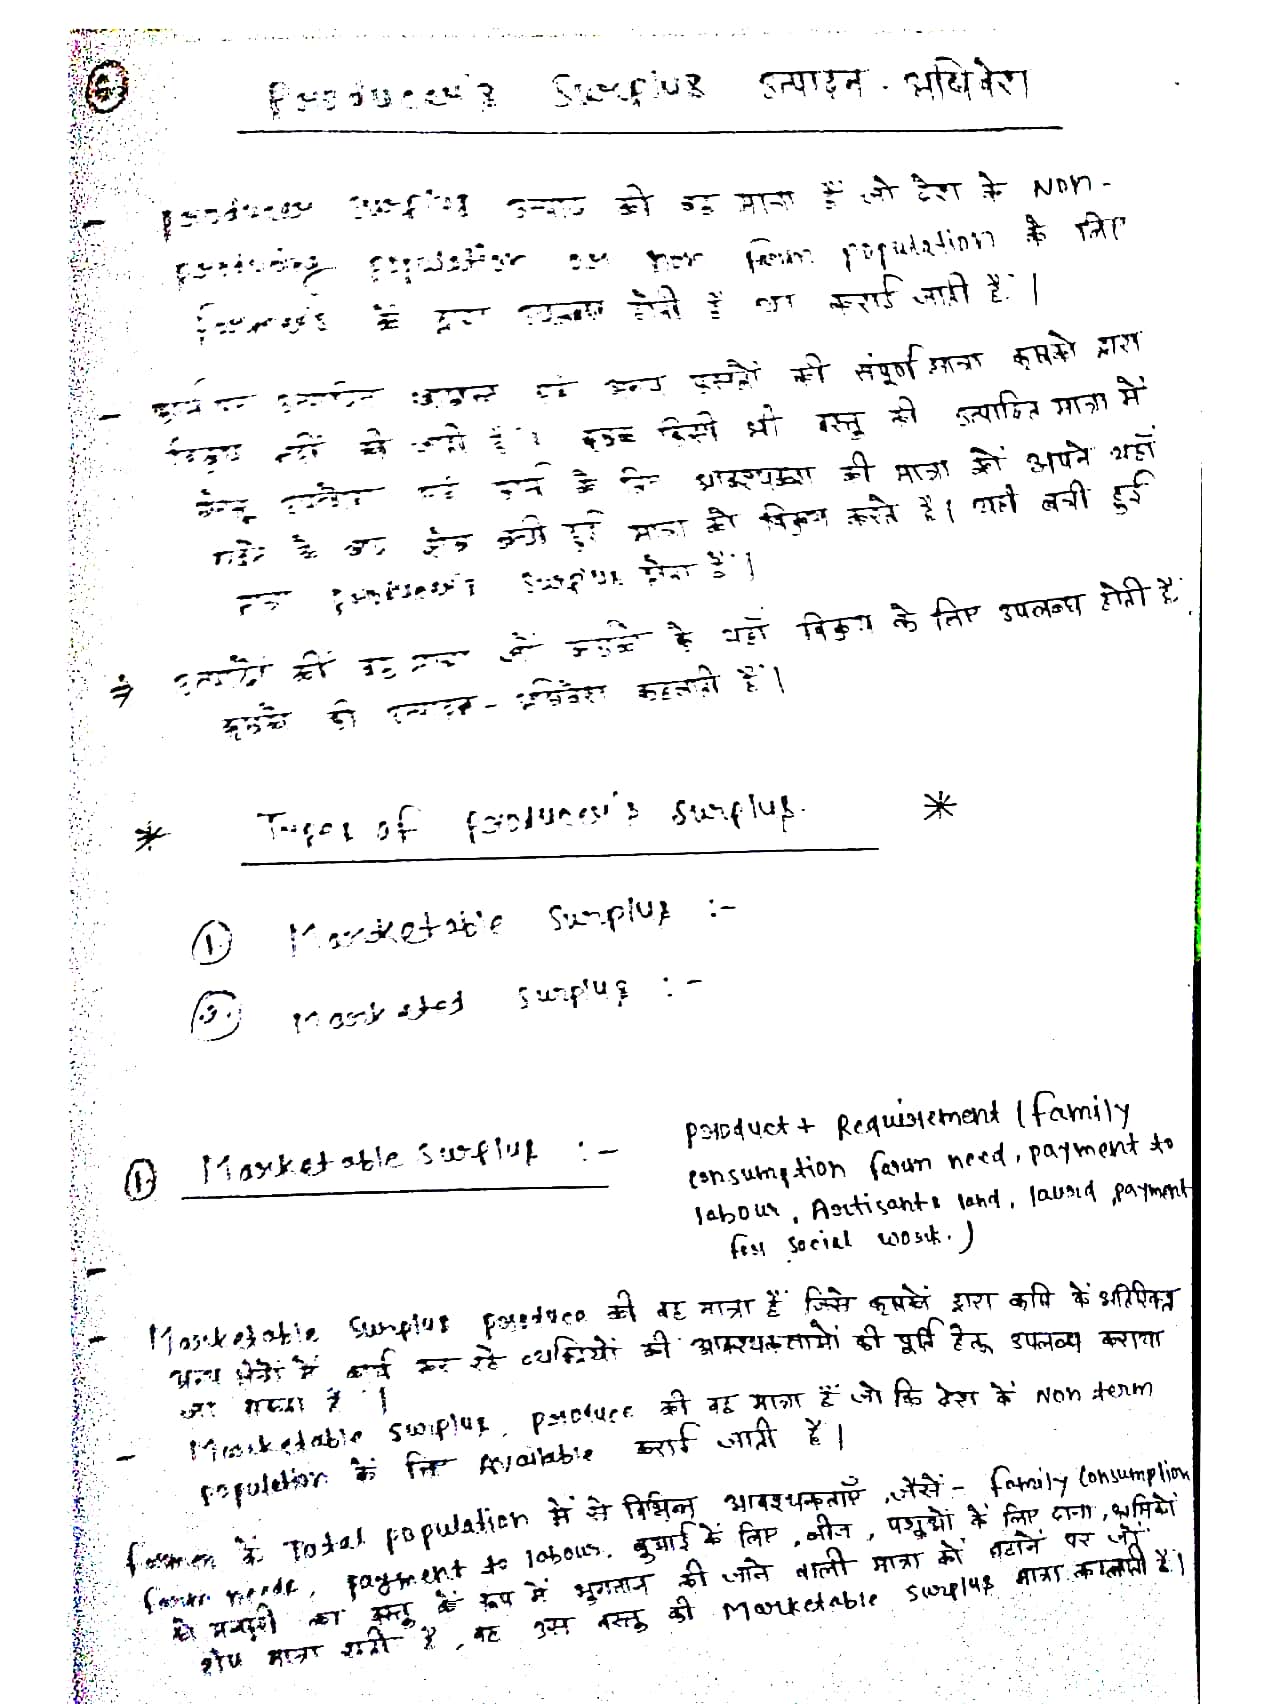 Producer's Surplus उत्पादन - अधिशेष
- producer surplus उत्पाद की वह मात्रा हैं जो देश के Non-
producing population or non farm population के लिए
farmer's के द्वारा उपलब्ध होती हैं या कराई जाती हैं।
- उत्पादित एवं अन्य फसलों की संपूर्ण मात्रा कृषको द्वारा
विक्रय नहीं की जाती हैं। कृषक किसी भी वस्तु की उत्पादित मात्रा में
के लिए आवश्यकता की मात्रा को अपने यहाँ
के बाद शेष बची हुई मात्रा को विक्रय करते है। यही बची हुई
producer's surplus होता हैं।
⇒ उत्पादों की वह मात्रा जो कृषको के यहाँ विक्रय के लिए उपलब्ध होती हैं
कृषको की उत्पादन - अधिशेष कहलाती हैं।
* Types of producer's surplus. *
1. Marketable Surplus :-
2. Marketed Surplus :-
1. Marketable Surplus :-
product + Requirement (family
consumption farm need, payment to
labour, Artisants land, payment
for social work.)
-
- Marketable Surplus produce की वह मात्रा हैं जिसे कृषकों द्वारा कृषि के अतिरिक्त
अन्य क्षेत्रों में कार्य कर रहे व्यक्तियों की आवश्यकताओं की पूर्ति हेतु उपलब्ध कराया
जा सकता है।
- Marketable surplus, produce की वह मात्रा हैं जो कि देश के Non term
population के लिए Available कराई जाती हैं।
farmer के Total population में से विभिन्न आवश्यकताएँ, जैसें - family Consumption
farm needs, payment to labour, बुआई के लिए, बीज, पशुओं के लिए दाना, श्रमिकों
को मजदूरी का वस्तु के रूप में भुगतान की जाने वाली मात्रा को घटाने पर जो
शेष मात्रा रहती है, वह उस वस्तु की Marketable surplus मात्रा कहलाती हैं।